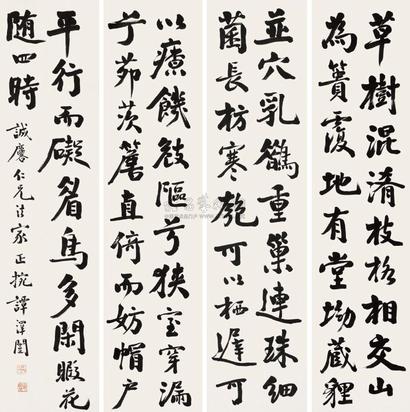 草樹混淆枝格相交山
為簣覆地有堂坳藏貍
並穴乳鵲重巢連珠細
菌長枋寒匏可以栖遲可
以療饑敧嶇兮狹室穿漏
兮茆茨簷直倚而妨帽户
平行而礙眉鳥多閑暇花
随四時
誠麐仁兄法家正捥 譚澤闓